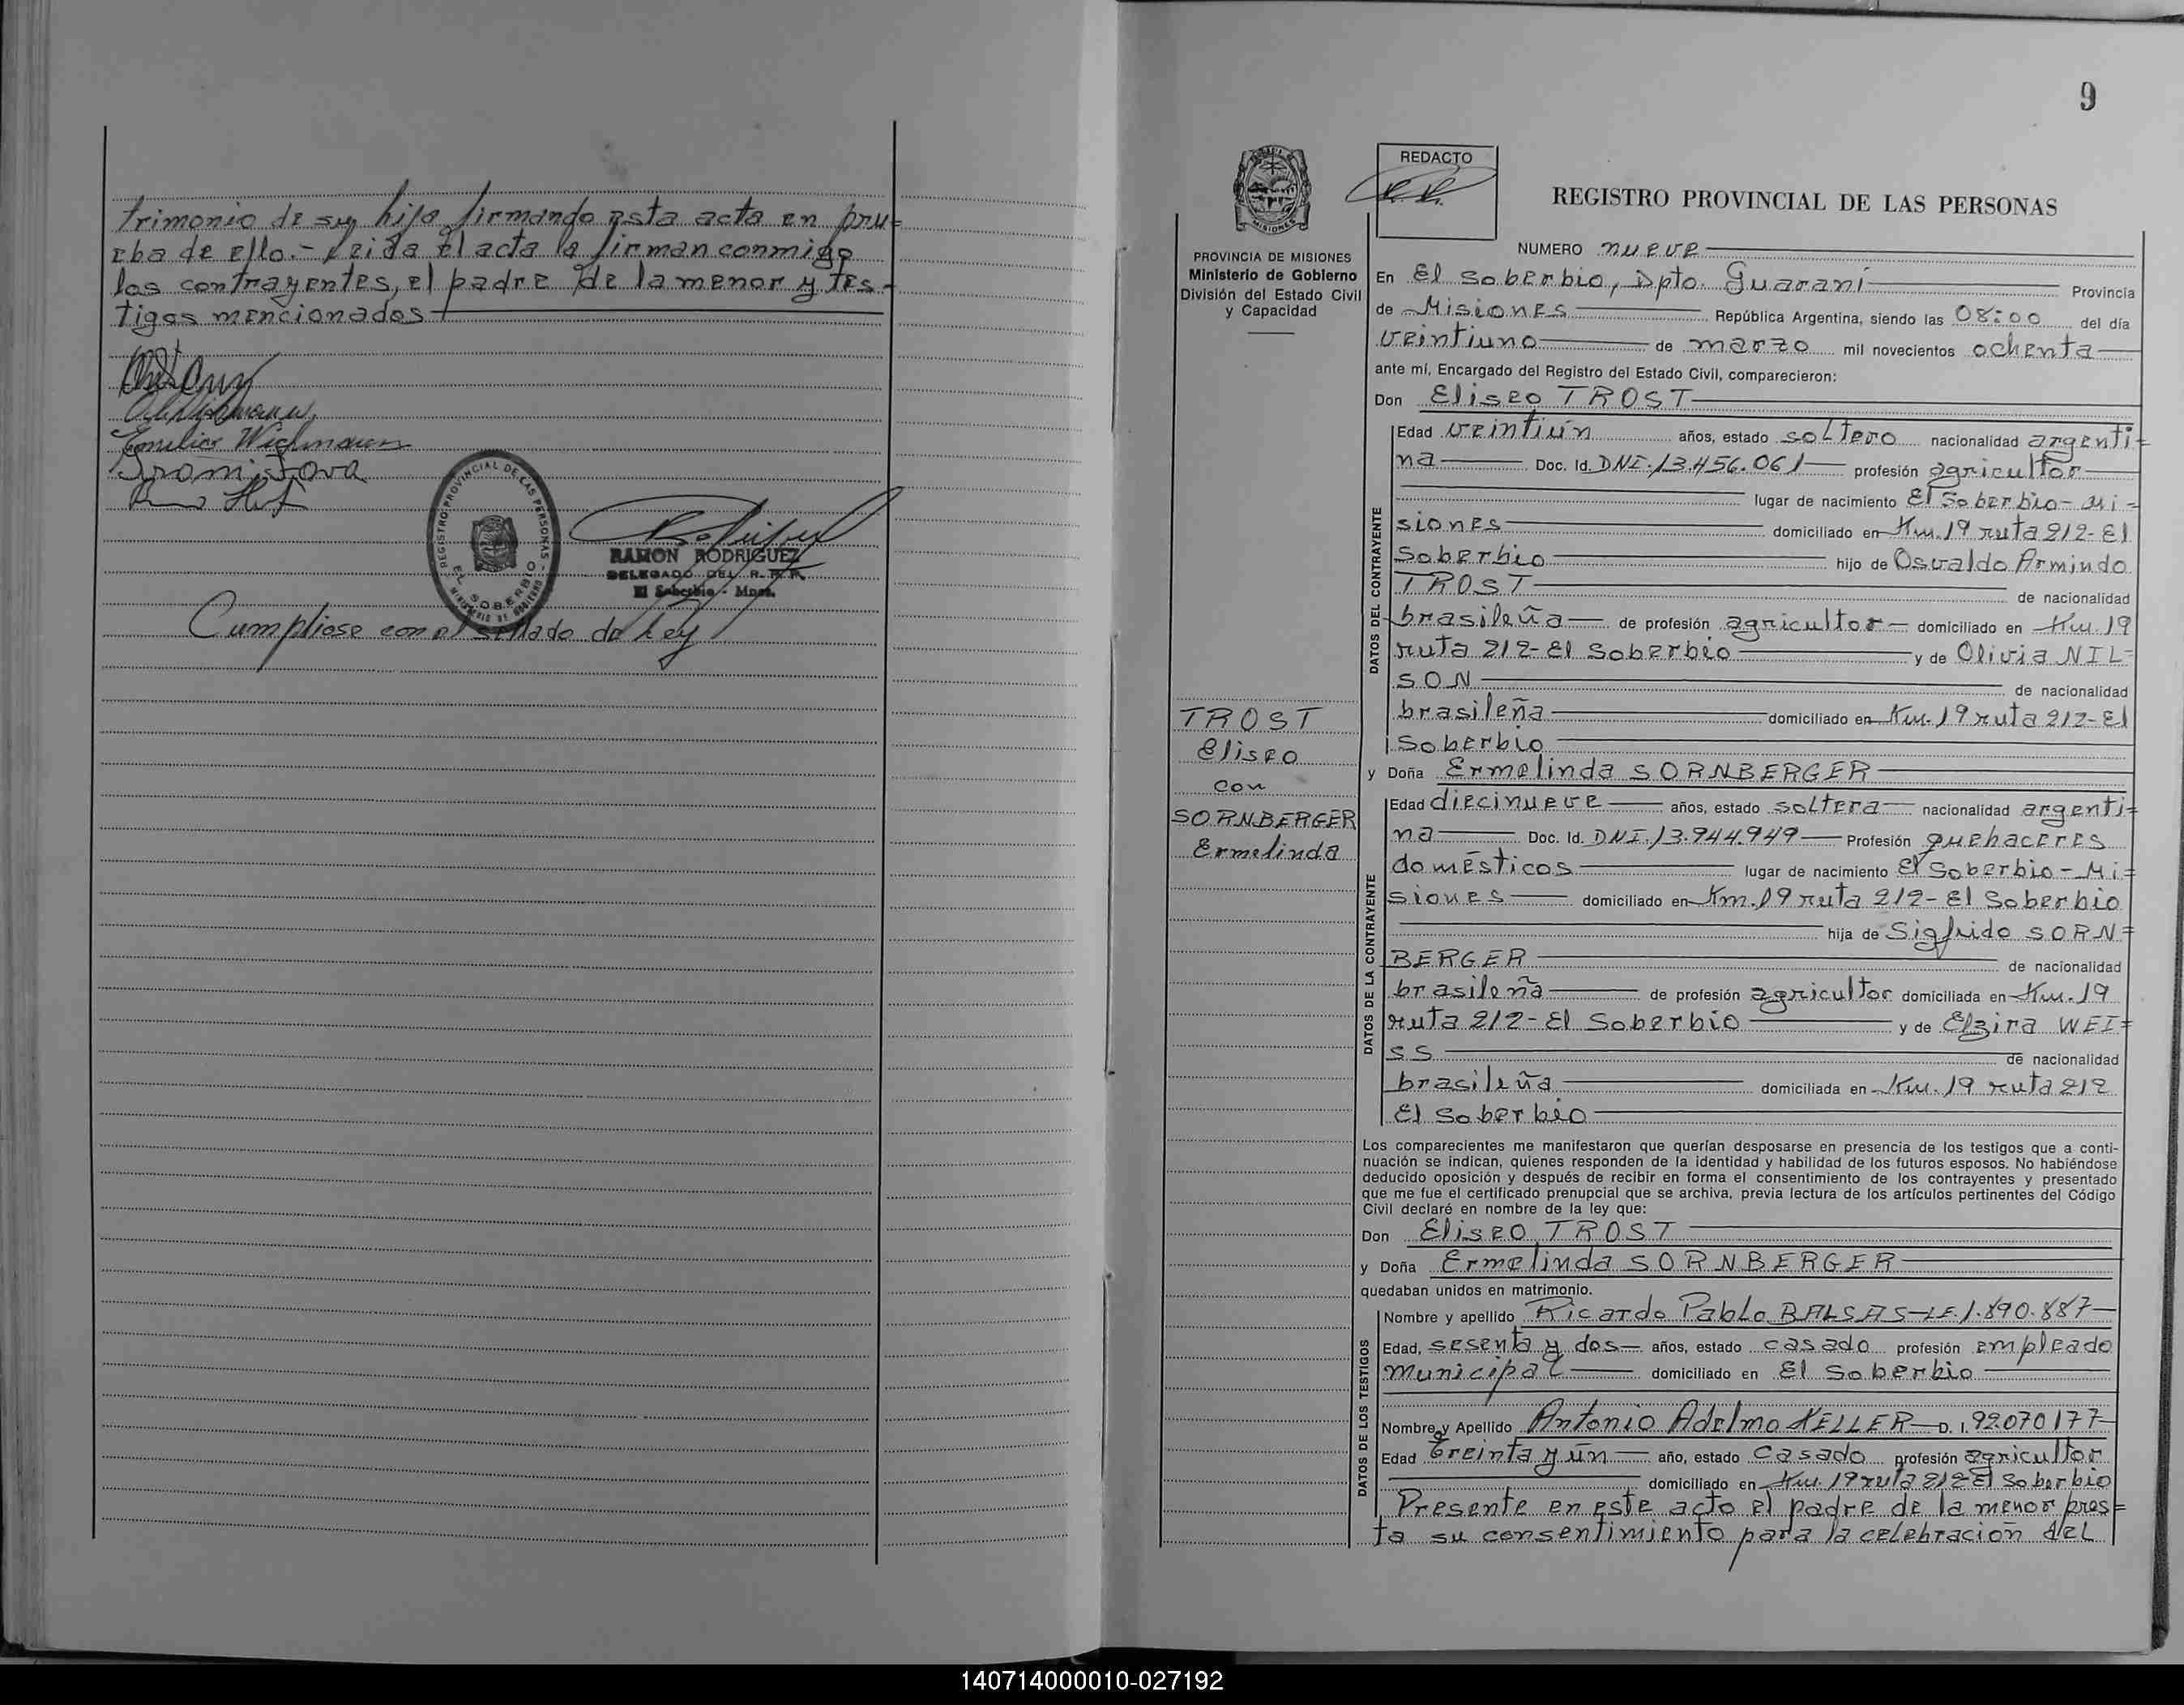 trimonio de su hija firmando esta acta en pru=
eba de ello.- Leida el acta la firman conmigo
los contrayentes, el padre de la menor y tes-
tigos mencionados
Emilio Wichmann
REGISTRO PROVINCIAL DE LAS PERSONAS
EL SOBERBIO
RAMON RODRIGUEZ
DELEGADO DEL R. P. P.
El Soberbio - Mnes.
Cumpliose con el sellado de Ley
9
REDACTO
REGISTRO PROVINCIAL DE LAS PERSONAS
MISIONES
PROVINCIA DE MISIONES
Ministerio de Gobierno
División del Estado Civil
y Capacidad
TROST
Eliseo
con
SORNBERGER
Ermelinda
NUMERO nueve
En El Soberbio, Dpto. Guaraní Provincia
de Misiones República Argentina, siendo las 08:00 del día
veintiuno de marzo mil novecientos ochenta
ante mí, Encargado del Registro del Estado Civil, comparecieron:
Don Eliseo TROST
DATOS DEL CONTRAYENTE
Edad veintiún años, estado soltero nacionalidad argenti=
na Doc. Id. DNI.13.456.061 profesión agricultor
lugar de nacimiento El Soberbio-Mi=
siones domiciliado en Km.19 ruta 212-El
Soberbio hijo de Osvaldo Armindo
TROST de nacionalidad
brasileña de profesión agricultor domiciliado en Km.19
ruta 212-El Soberbio y de Olivia NIL=
SON de nacionalidad
brasileña domiciliado en Km.19 ruta 212-El
Soberbio
y Doña Ermelinda SORNBERGER
DATOS DE LA CONTRAYENTE
Edad diecinueve años, estado soltera nacionalidad argenti=
na Doc. Id. DNI.13.944.949 Profesión quehaceres
domésticos lugar de nacimiento El Soberbio-Mi=
siones domiciliado en Km.19 ruta 212-El Soberbio
hija de Sigfrido SORN=
BERGER de nacionalidad
brasileña de profesión agricultor domiciliada en Km.19
ruta 212-El Soberbio y de Elzira WEI=
SS de nacionalidad
brasileña domiciliada en Km.19 ruta 212
El Soberbio
Los comparecientes me manifestaron que querían desposarse en presencia de los testigos que a conti-
nuación se indican, quienes responden de la identidad y habilidad de los futuros esposos. No habiéndose
deducido oposición y después de recibir en forma el consentimiento de los contrayentes y presentado
que me fue el certificado prenupcial que se archiva, previa lectura de los artículos pertinentes del Código
Civil declaré en nombre de la ley que:
Don Eliseo TROST
y Doña Ermelinda SORNBERGER
quedaban unidos en matrimonio.
DATOS DE LOS TESTIGOS
Nombre y apellido Ricardo Pablo BALSAS-LE.1.890.887
Edad, sesenta y dos años, estado casado profesión empleado
municipal domiciliado en El Soberbio
Nombre y Apellido Antonio Adelmo KELLER D. I. 92070177
Edad treinta y ún año, estado casado profesión agricultor
domiciliado en Km.19 ruta 212 El Soberbio
Presente en este acto el padre de la menor pres=
ta su consentimiento para la celebración del
140714000010-027192